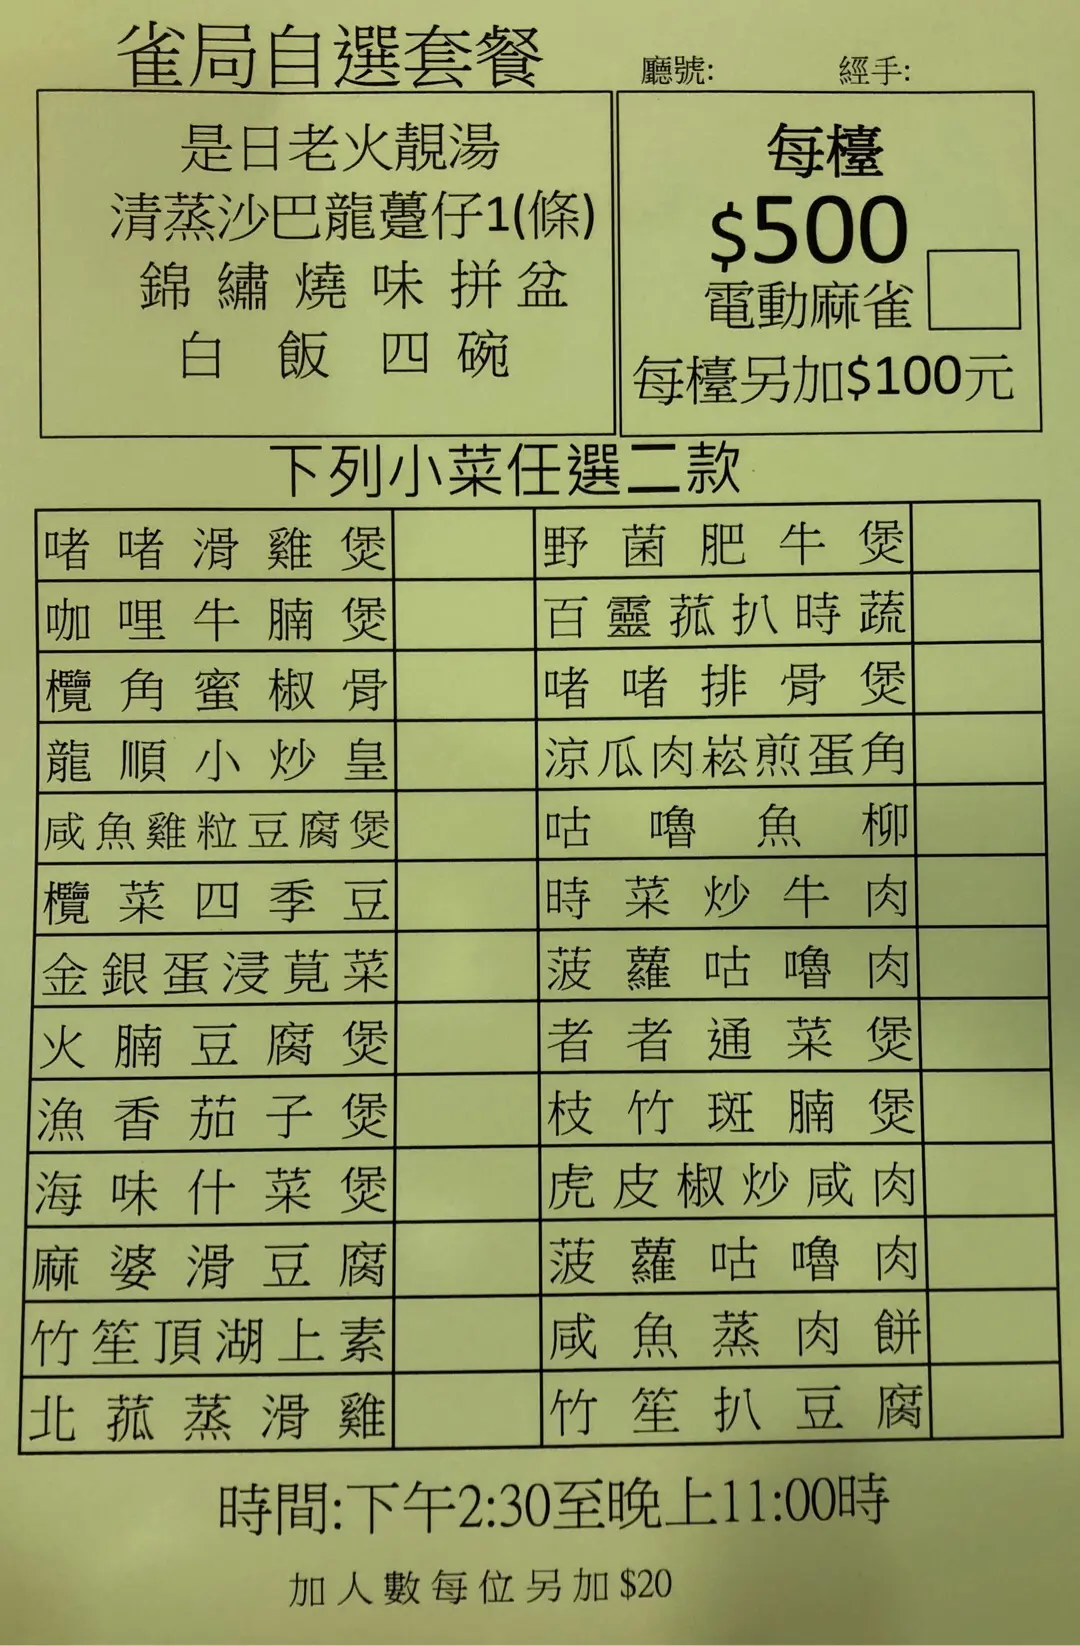 雀局自選套餐
廳號:
經手:
是日老火靚湯
清蒸沙巴龍躉仔1(條)
錦繡燒味拼盆
白飯四碗
每檯
$500
電動麻雀
每檯另加$100元
下列小菜任選二款
啫啫滑雞煲
野菌肥牛煲
咖哩牛腩煲
百靈菰扒時蔬
欖角蜜椒骨
啫啫排骨煲
龍順小炒皇
涼瓜肉崧煎蛋角
咸魚雞粒豆腐煲
咕嚕魚柳
欖菜四季豆
時菜炒牛肉
金銀蛋浸莧菜
菠蘿咕嚕肉
火腩豆腐煲
者者通菜煲
漁香茄子煲
枝竹斑腩煲
海味什菜煲
虎皮椒炒咸肉
麻婆滑豆腐
菠蘿咕嚕肉
竹笙頂湖上素
咸魚蒸肉餅
北菰蒸滑雞
竹笙扒豆腐
時間:下午2:30至晚上11:00時
加人數每位另加$20